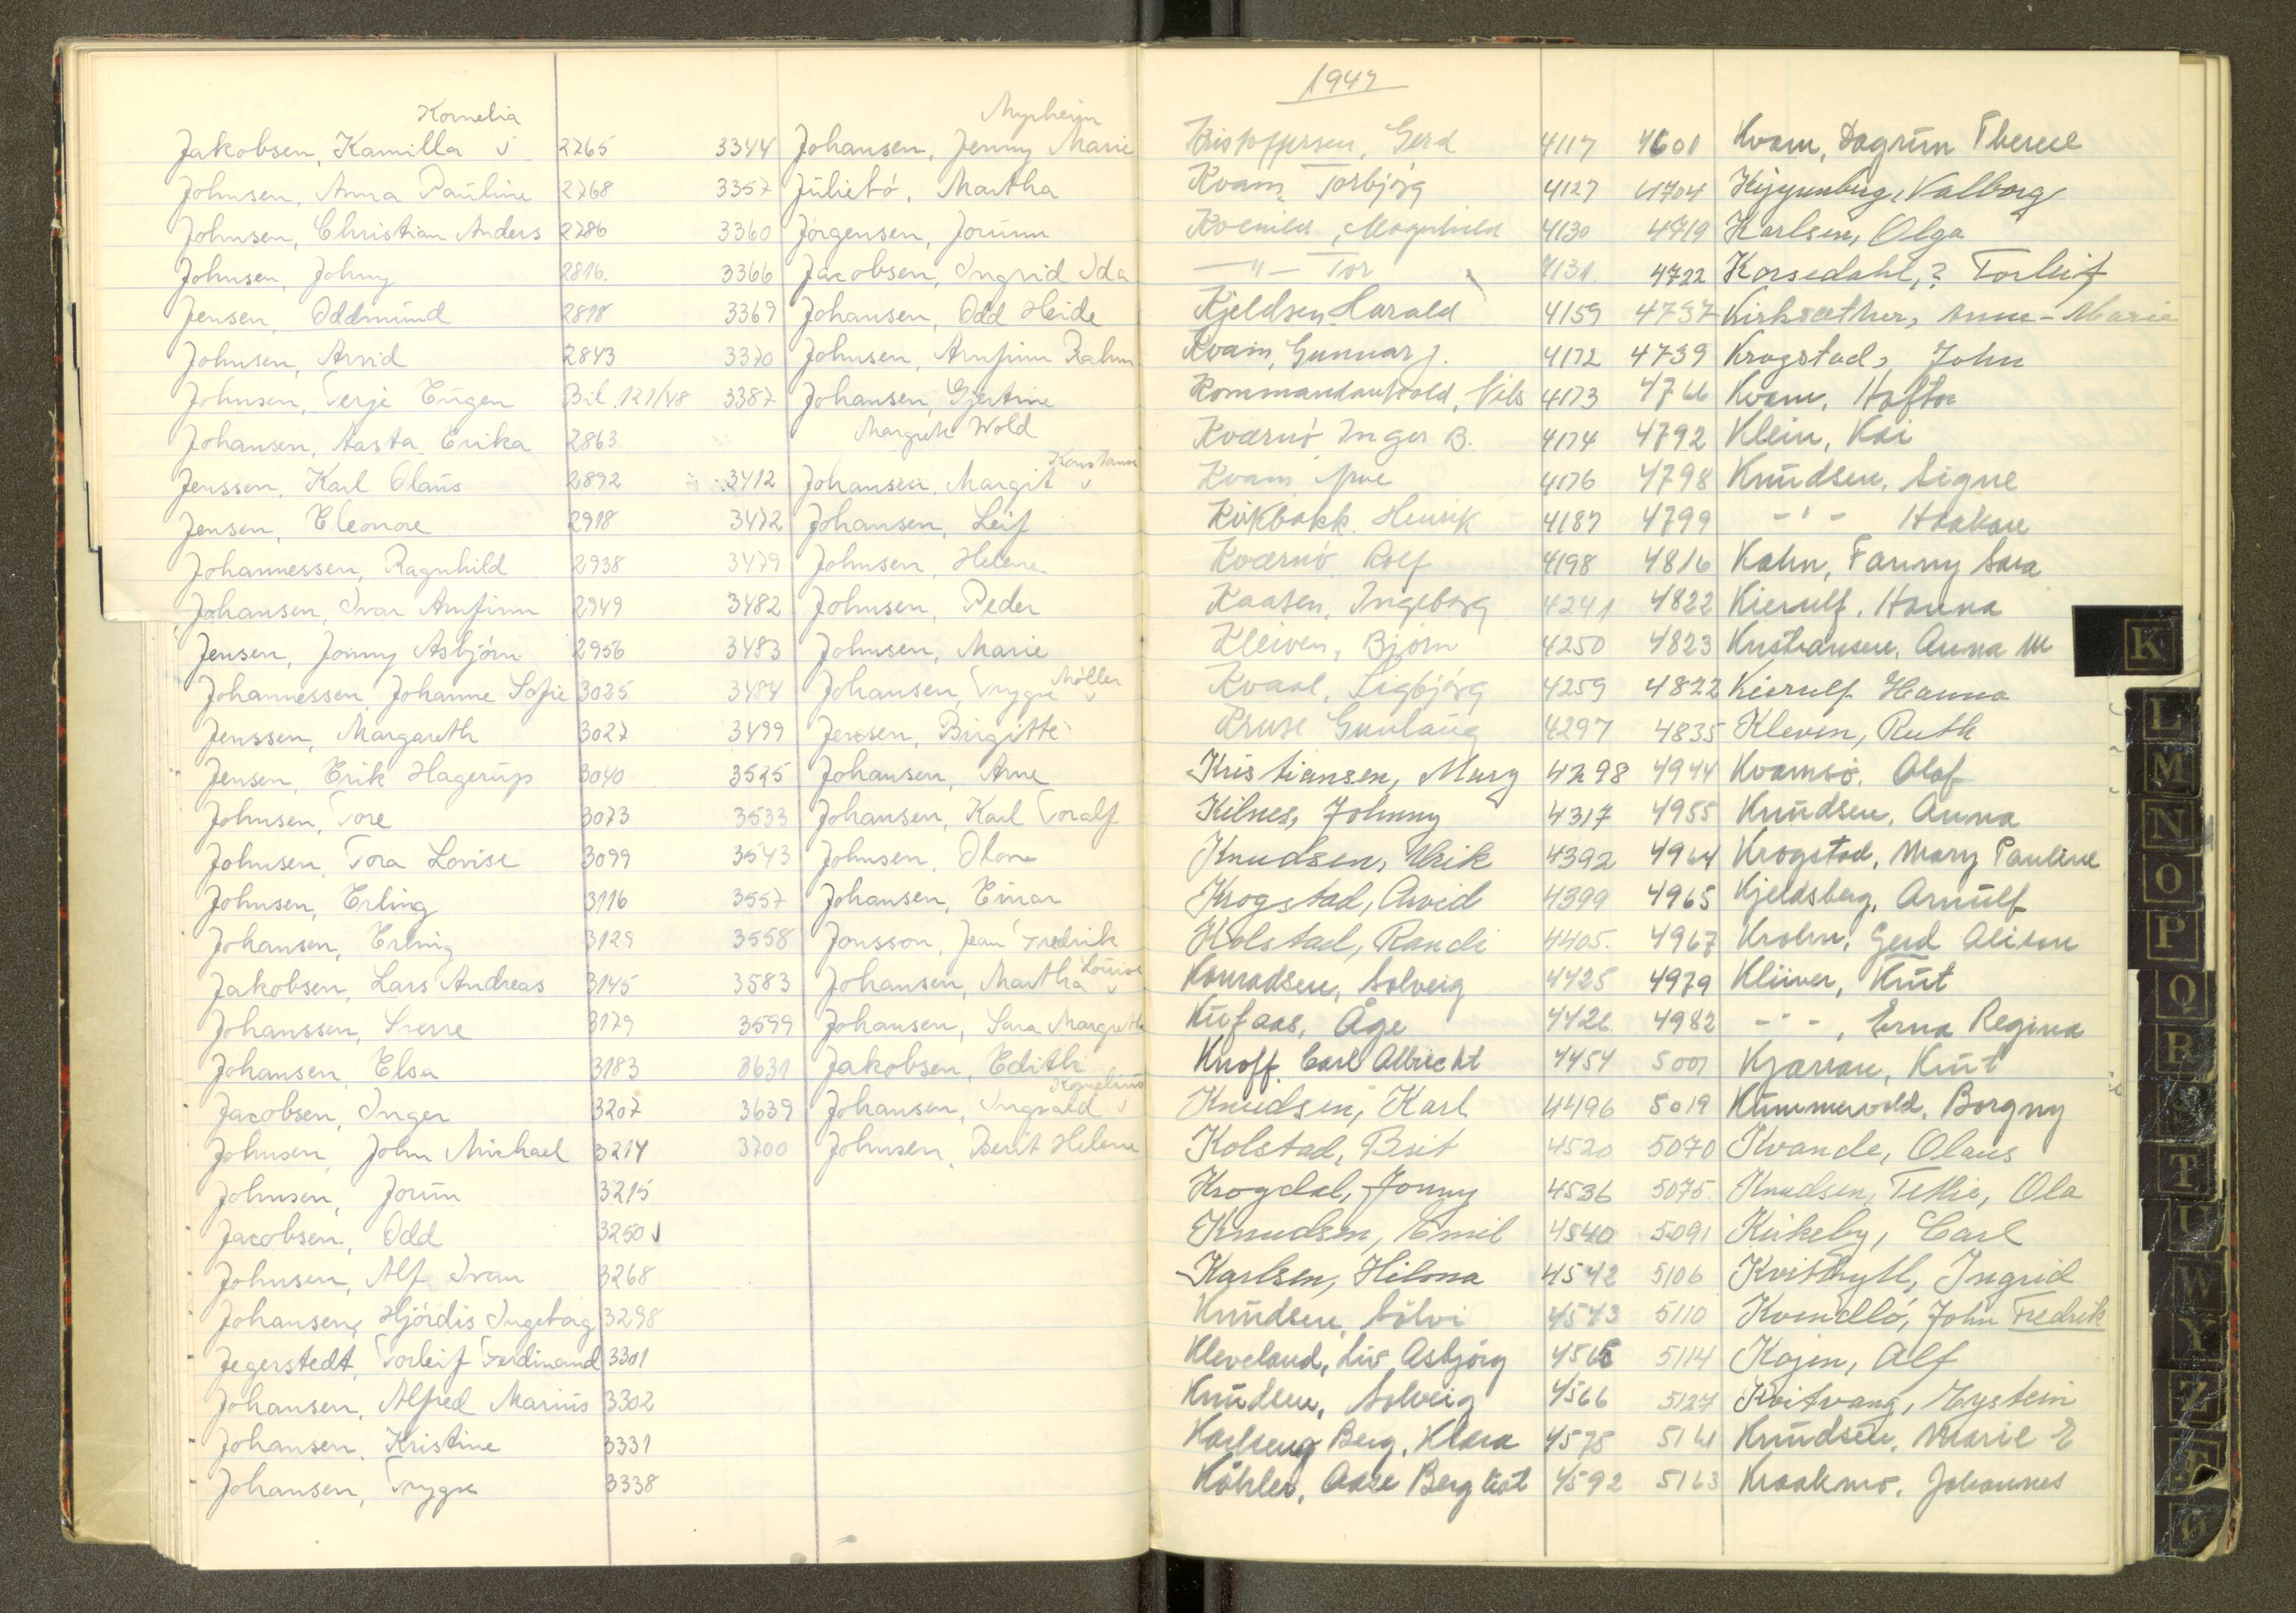 Kornelia
Jakobsen, Kamilla v 2765
Johnsen, Anna Pauline 2768
Johnsen, Christian Anders 2786
Johnsen, Johny 2816.
Jensen, Oddmund 2818
Johnsen, Arvid 2843
Johnsen, Terje Eugen Bil. 121/48
Johansen, Aasta Erika 2863
Jenssen, Karl Olaus 2892
Jensen, Eleonore 2918
Johannessen, Ragnhild 2938
Johansen, Ivar Arnfinn 2949
Jensen, Jonny Asbjörn 2956
Johannessen, Johanne Sofie 3025
Jenssen, Margareth 3027
Jensen, Erik Hagerup 3040
Johnsen, Tore 3073
Johnsen, Tora Lovise 3099
Johnsen, Erling 3116
Johansen, Erling 3129
Jakobsen, Lars Andreas 3145
Johanssen, Sverre 3179
Johansen, Elsa 3183
Jacobsen, Inger 3207
Johnsen, John Michael 3214
Johnsen, Jorun 3215
Jacobsen, Odd 3250 v
Johnsen, Alf Ivan 3268
Johansen, Hjördis Ingeborg 3298
Jegerstedt, Torleif Ferdinand 3301
Johansen, Alfred Marius 3302
Johansen, Kristine 3331
Johansen, Trygve 3338
Myrheim
3344 Johansen, Jenny Marie
3357 Juliebö, Martha
3360 Jörgensen, Jorunn
3366 Jacobsen, Ingrid Ida
3369 Johansen, Odd Heide
3370 Johnsen, Arnfinn Rahm
3387 Johansen, Gjertine
Margrete Wold
Konstanse
3412 Johansen, Margit v
3472 Johansen, Leif
3479 Johnsen, Helene
3482 Johnsen, Peder
3483 Johnsen, Marie
Möller
3484 Johansen, Trygve v
3499 Jensen, Birgitte
3525 Johansen, Arne
3533 Johansen, Karl Toralf
3543 Johnsen, Olav
3557 Johansen, Einar
3558 Jonsson, Jean Fredrik
Louise
3583 Johansen, Martha v
3599 Johansen, Sara Margrethe
3631 Jakobsen, Edith
Kornelius
3639 Johansen, Ingvald v
3700 Johnsen, Berit Helene
1947
Kristoffersen, Gerd 4117
Kvam, Torbjörg 4127
Kvenild, Magnhild 4130
— " — Tor 4131.
Kjeldsen Harald 4159
Kvam, Gunnar J. 4172
Kommandantvold, Nils 4173
Kværnö Inger B. 4174
Kvam Arne 4176
Kirkbakk. Henrik 4187
Kværnö Rolf 4198
Kaasen, Ingeborg 4241
Kleiven, Björn 4250
Kvaal, Sigbjörg 4259
Kruse Gunlaug 4297
Kristiansen, Mary 4298
Kilnes, Johnny 4317
Knudsen, Ulrik 4392
Krogstad, Arvid 4399
Kolstad, Randi 4405.
Konradsen, Solveig 4425
Kufaas, Åge 4426.
Knoff. Carl Albrecht 4454
Knudsen, Karl 4496
Kolstad, Brit 4520
Krogdal, Jonny 4536
Knudsen, Emil 4540
Karlsen, Hilma 4542
Knudsen, Sölvi 4543
Kleveland, Liv Asbjörg 4565
Knudsen, Solveig 4566
Karlseng Berg, Klara 4575
Köhler, Aase Bergliot 4592
4601 Kvam, Dagrun Therese
4704 Kipperberg, Valborg
4719 Karlsen, Olga
4722 Korsedahl,? Torleif
4737 Kirksæther, Anne-Marie
4739 Krogstad, John
4766 Kvam, Haftor
4792 Klein, Kai
4798 Knudsen, Signe
4799 - " - Haakon
4816 Kahn, Fanny Sara
4822 Kierulf, Hanna
4823 Kristiansen, Anna M
4822 Kierulf Hanna
4835 Kleven, Ruth
4944 Kvamsö, Olaf
4955 Knudsen, Anna
4964 Krogstad, Mary Pauline
4965 Kjeldsberg, Arnulf
4967 Krohn, Gerd Alison
4979 Klüver, Knut
4982 - " - , Erna Regina
5001 Kjarvan, Knut
5019 Kummervold, Borgny
5070 Kvande, Olaus
5075. Knudsen, Tettie, Ola
5091 Kirkeby, Carl
5106 Kvithyll, Ingrid
5110 Kvendbö, John Fredrik
5114 Kojen, Alf
5127 Kvitvang, Eystein
5141 Knudsen, Marie E
5163 Kraakmo, Johannes
K
L
M
N
O
P
Q
R
S
T
U
W
Y
Z
Ø